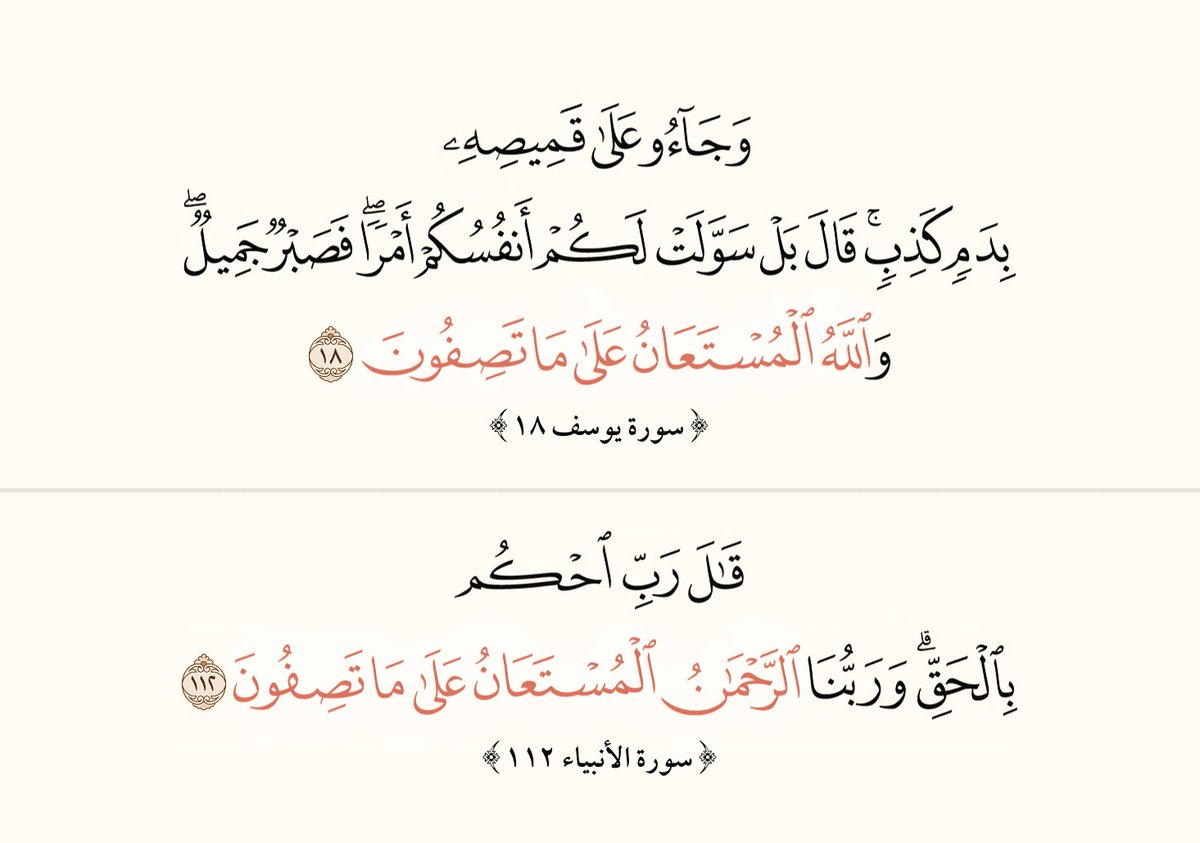 وَجَآءُو عَلَىٰ قَمِيصِهِۦ
بِدَمٖ كَذِبٖۚ قَالَ بَلۡ سَوَّلَتۡ لَكُمۡ أَنفُسُكُمۡ أَمۡرٗاۖ فَصَبۡرٞ جَمِيلٞۖ
وَٱللَّهُ ٱلۡمُسۡتَعَانُ عَلَىٰ مَا تَصِفُونَ ١٨
﴿ سورة يوسف ١٨ ﴾
قَٰلَ رَبِّ ٱحۡكُم
بِٱلۡحَقِّۗ وَرَبُّنَا ٱلرَّحۡمَٰنُ ٱلۡمُسۡتَعَانُ عَلَىٰ مَا تَصِفُونَ ١١٢
﴿ سورة الأنبياء ١١٢ ﴾